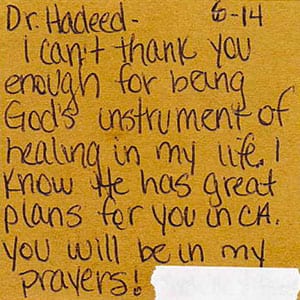 Dr. Hadeed- 6-14
I can't thank you
enough for being
God's instrument of
healing in my life. I
know He has great
plans for you in CA.
You will be in my
prayers!